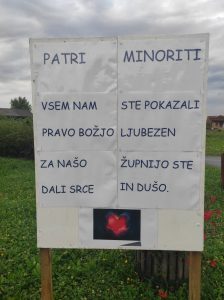 PATRI MINORITI
VSEM NAM STE POKAZALI
PRAVO BOŽJO LJUBEZEN
ZA NAŠO ŽUPNIJO STE
DALI SRCE IN DUŠO.